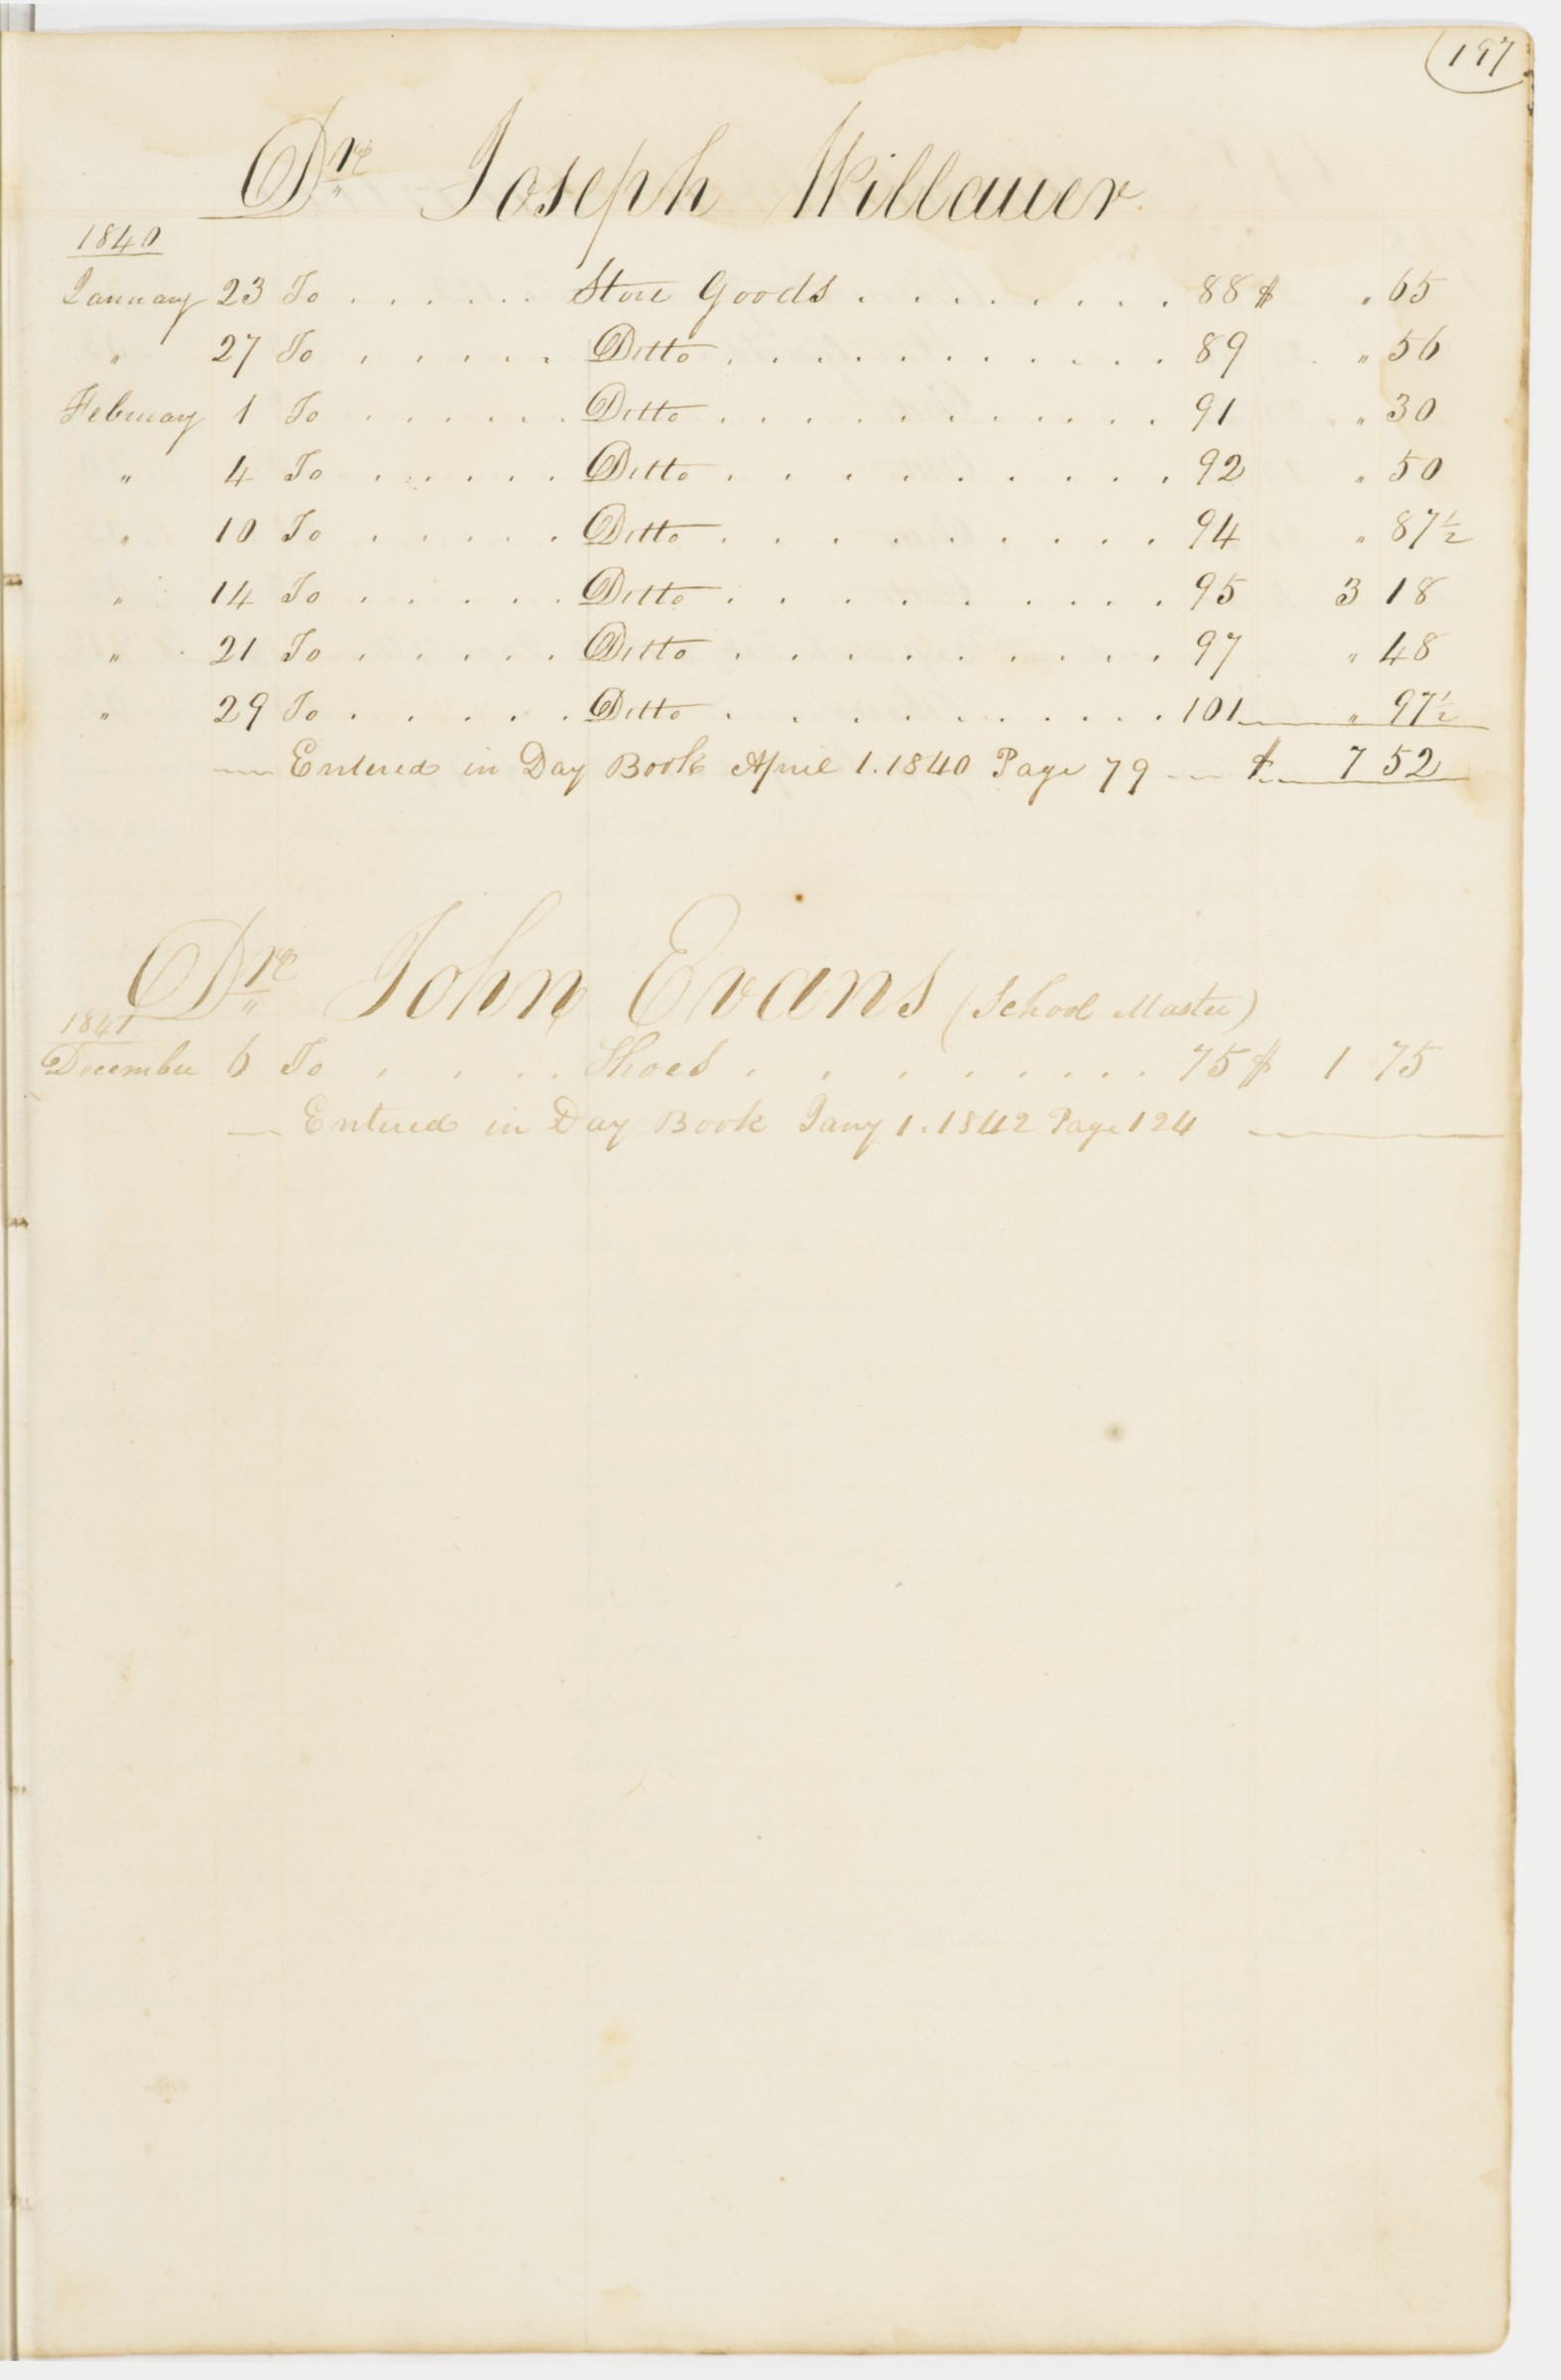 197
Dre Joseph Willauer
1840
January 23 To . . . . . . Store Goods . . . . . . . . . 88 $ " 65
" 27 To . . . . . . Ditto . . . . . . . . . . . 89 " 56
February 1 To . . . . . . Ditto . . . . . . . . . . . 91 " 30
" 4 To . . . . . Ditto . . . . . . . . . . 92 " 50
" 10 To . . . . . Ditto . . . . . . . . . . 94 " 87½
" 14 To . . . . . Ditto . . . . . . . . . . 95 3 18
" 21 To . . . . . Ditto . . . . . . . . . . 97 " 48
" 29 To . . . . . Ditto . . . . . . . . . . 101 " 97½
— Entered in Day Book April 1. 1840 Page 79 — $ 7 52
Dre John Evans (School Master)
1841
December 6 To . . . . . Shoes . . . . . . . . . 75 $ 1 75
— Entered in Day Book Jany 1. 1842 Page 124